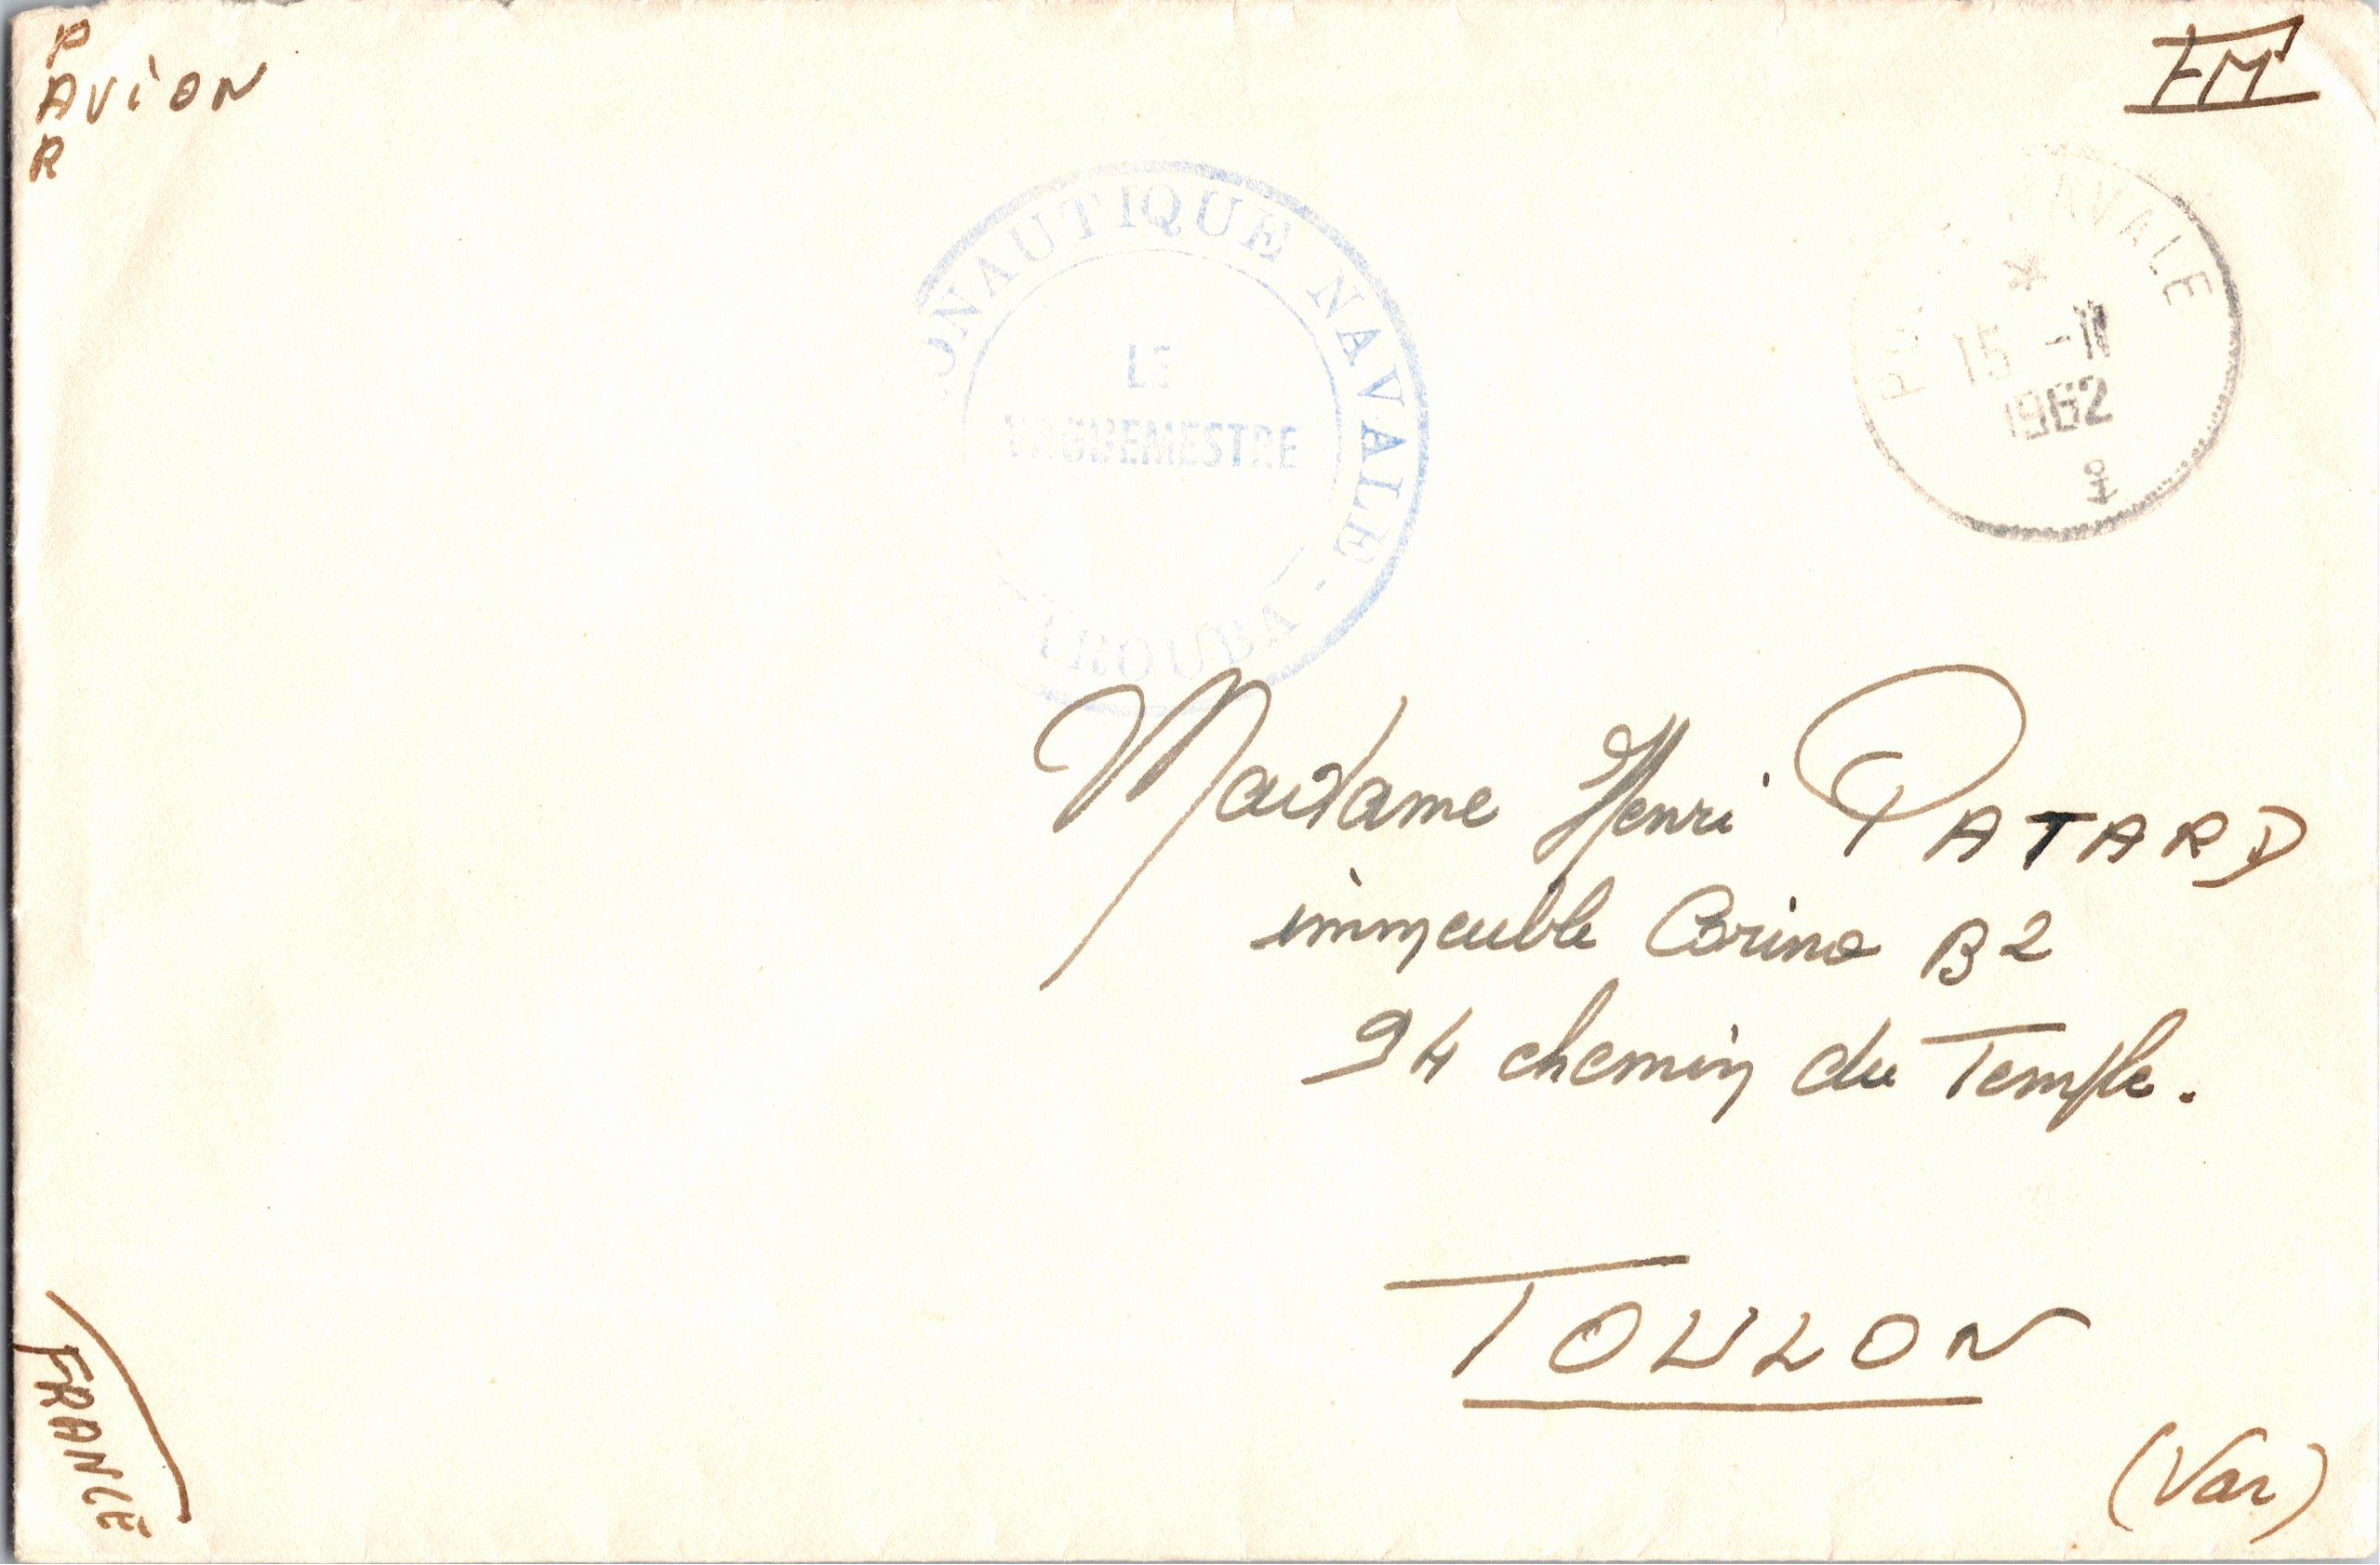 P
AVION
R
FM
ONAUTIQUE NAVALE -
LE
VAGUEMESTRE
ROUBA
NAVALE
*
15 -11
1962
Madame Henri PATARD
immeuble Corine B2
94 chemin du Temple.
TOULON
(Var)
FRANCE